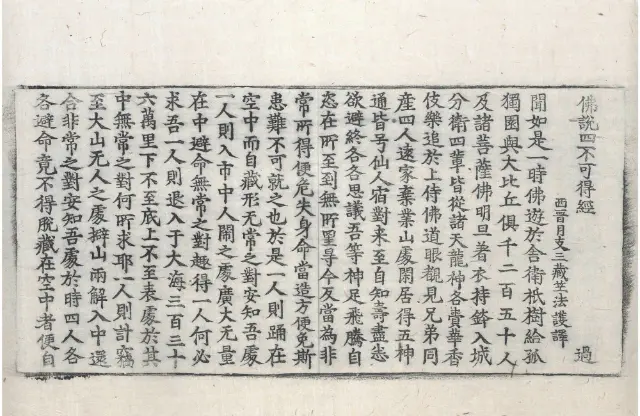 佛說四不可得經
西晉月支三藏竺法護譯 過
聞如是一時佛遊於舍衛祇樹給孤
獨園與大比丘俱千二百五十人
及諸菩薩佛明旦著衣持鉢入城
分衛四輩皆從諸天龍神各賷華香
伎樂追於上侍佛道眼覩見兄弟同
產四人遠家棄業山處閑居得五神
通皆号仙人宿對來至自知壽盡悉
欲避終各各思議吾等神足飛騰自
恣在所至到無所罣㝵今反當為非
常所得便危失身命當造方便免斯
患難不可就之也於是一人則踊在
空中而自藏形无常之對安知吾處
一人則入市中人鬧之處廣大无量
在中避命無常之對趣得一人何必
求吾一人則退入于大海三百三十
六萬里下不至底上不至表處於其
中無常之對何所求耶一人則計竊
至大山无人之處擗山兩解入中還
合非常之對安知吾處於時四人各
各避命竟不得脫藏在空中者便自